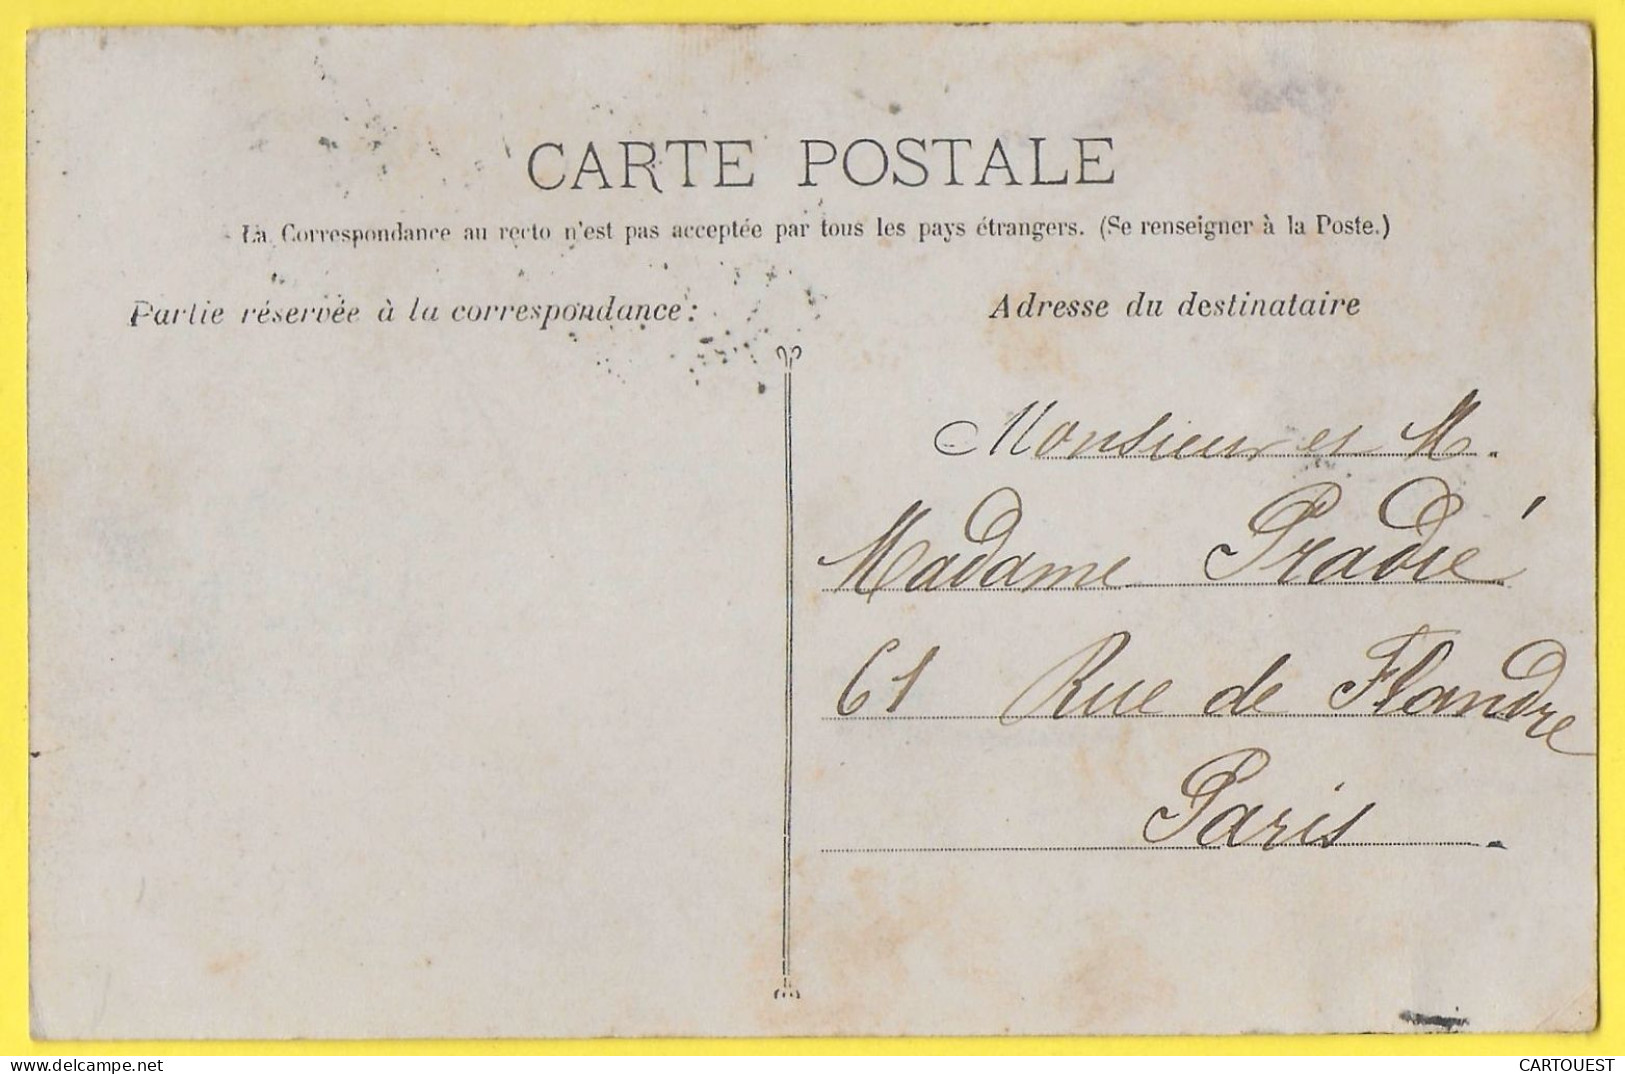 CARTE POSTALE
La Correspondance au recto n'est pas acceptée par tous les pays étrangers. (Se renseigner à la Poste.)
Partie réservée à la correspondance :
Adresse du destinataire
Monsieur et M.
Madame Pradié
61 Rue de Flandre
Paris
www.delcampe.net
CARTOUEST